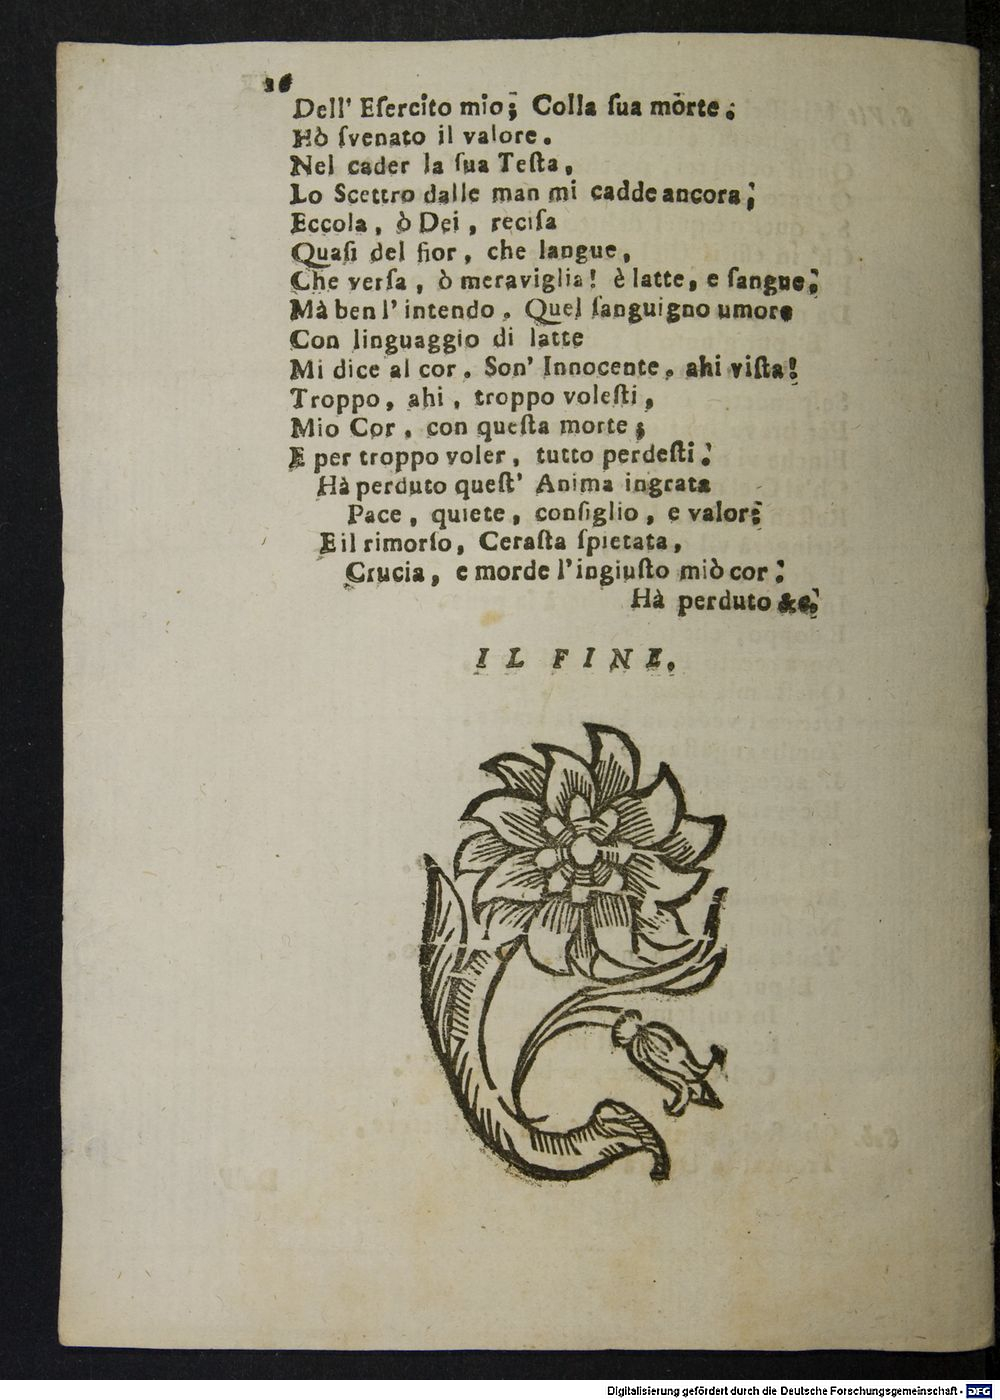 26
Dell' Eſercito mio; Colla ſua mòrte.
Hò ſvenato il valore.
Nel cader la ſua Teſta,
Lo Scettro dalle man mi cadde ancora;
Eccola, ò Dei, reciſa
Quaſi del fior, che langue,
Che verſa, ò meraviglia! è latte, e ſangue;
Mà ben l'intendo. Quel ſanguigno umore
Con linguaggio di latte
Mi dice al cor. Son' Innocente. ahi viſta!
Troppo, ahi, troppo voleſti,
Mio Cor, con queſta morte;
E per troppo voler, tutto perdeſti.
Hà perduto queſt' Anima ingrata
Pace, quiete, conſiglio, e valor;
E il rimorſo, Ceraſta ſpietata,
Crucia, e morde l'ingiuſto miò cor.
Hà perduto &c.
IL FINE.
Digitalisierung gefördert durch die Deutsche Forschungsgemeinschaft - DFG